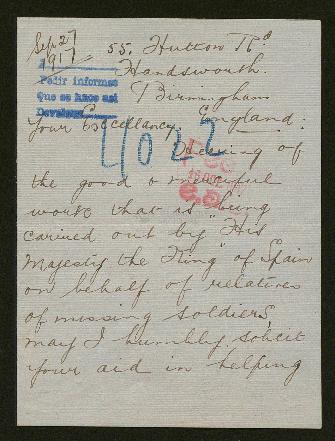 Sep 27
1917
55. Hutton Rd
Handsworth.
Birmingham
England.
Pedir informes
Que se hace asi
Your Excellancy.
4022
Hearing of
the good & merciful
work that is being
carried out by "His
Majesty the King" of Spain
on behalf of relatives
of missing soldiers,
may I humbly solicit
your aid in helping